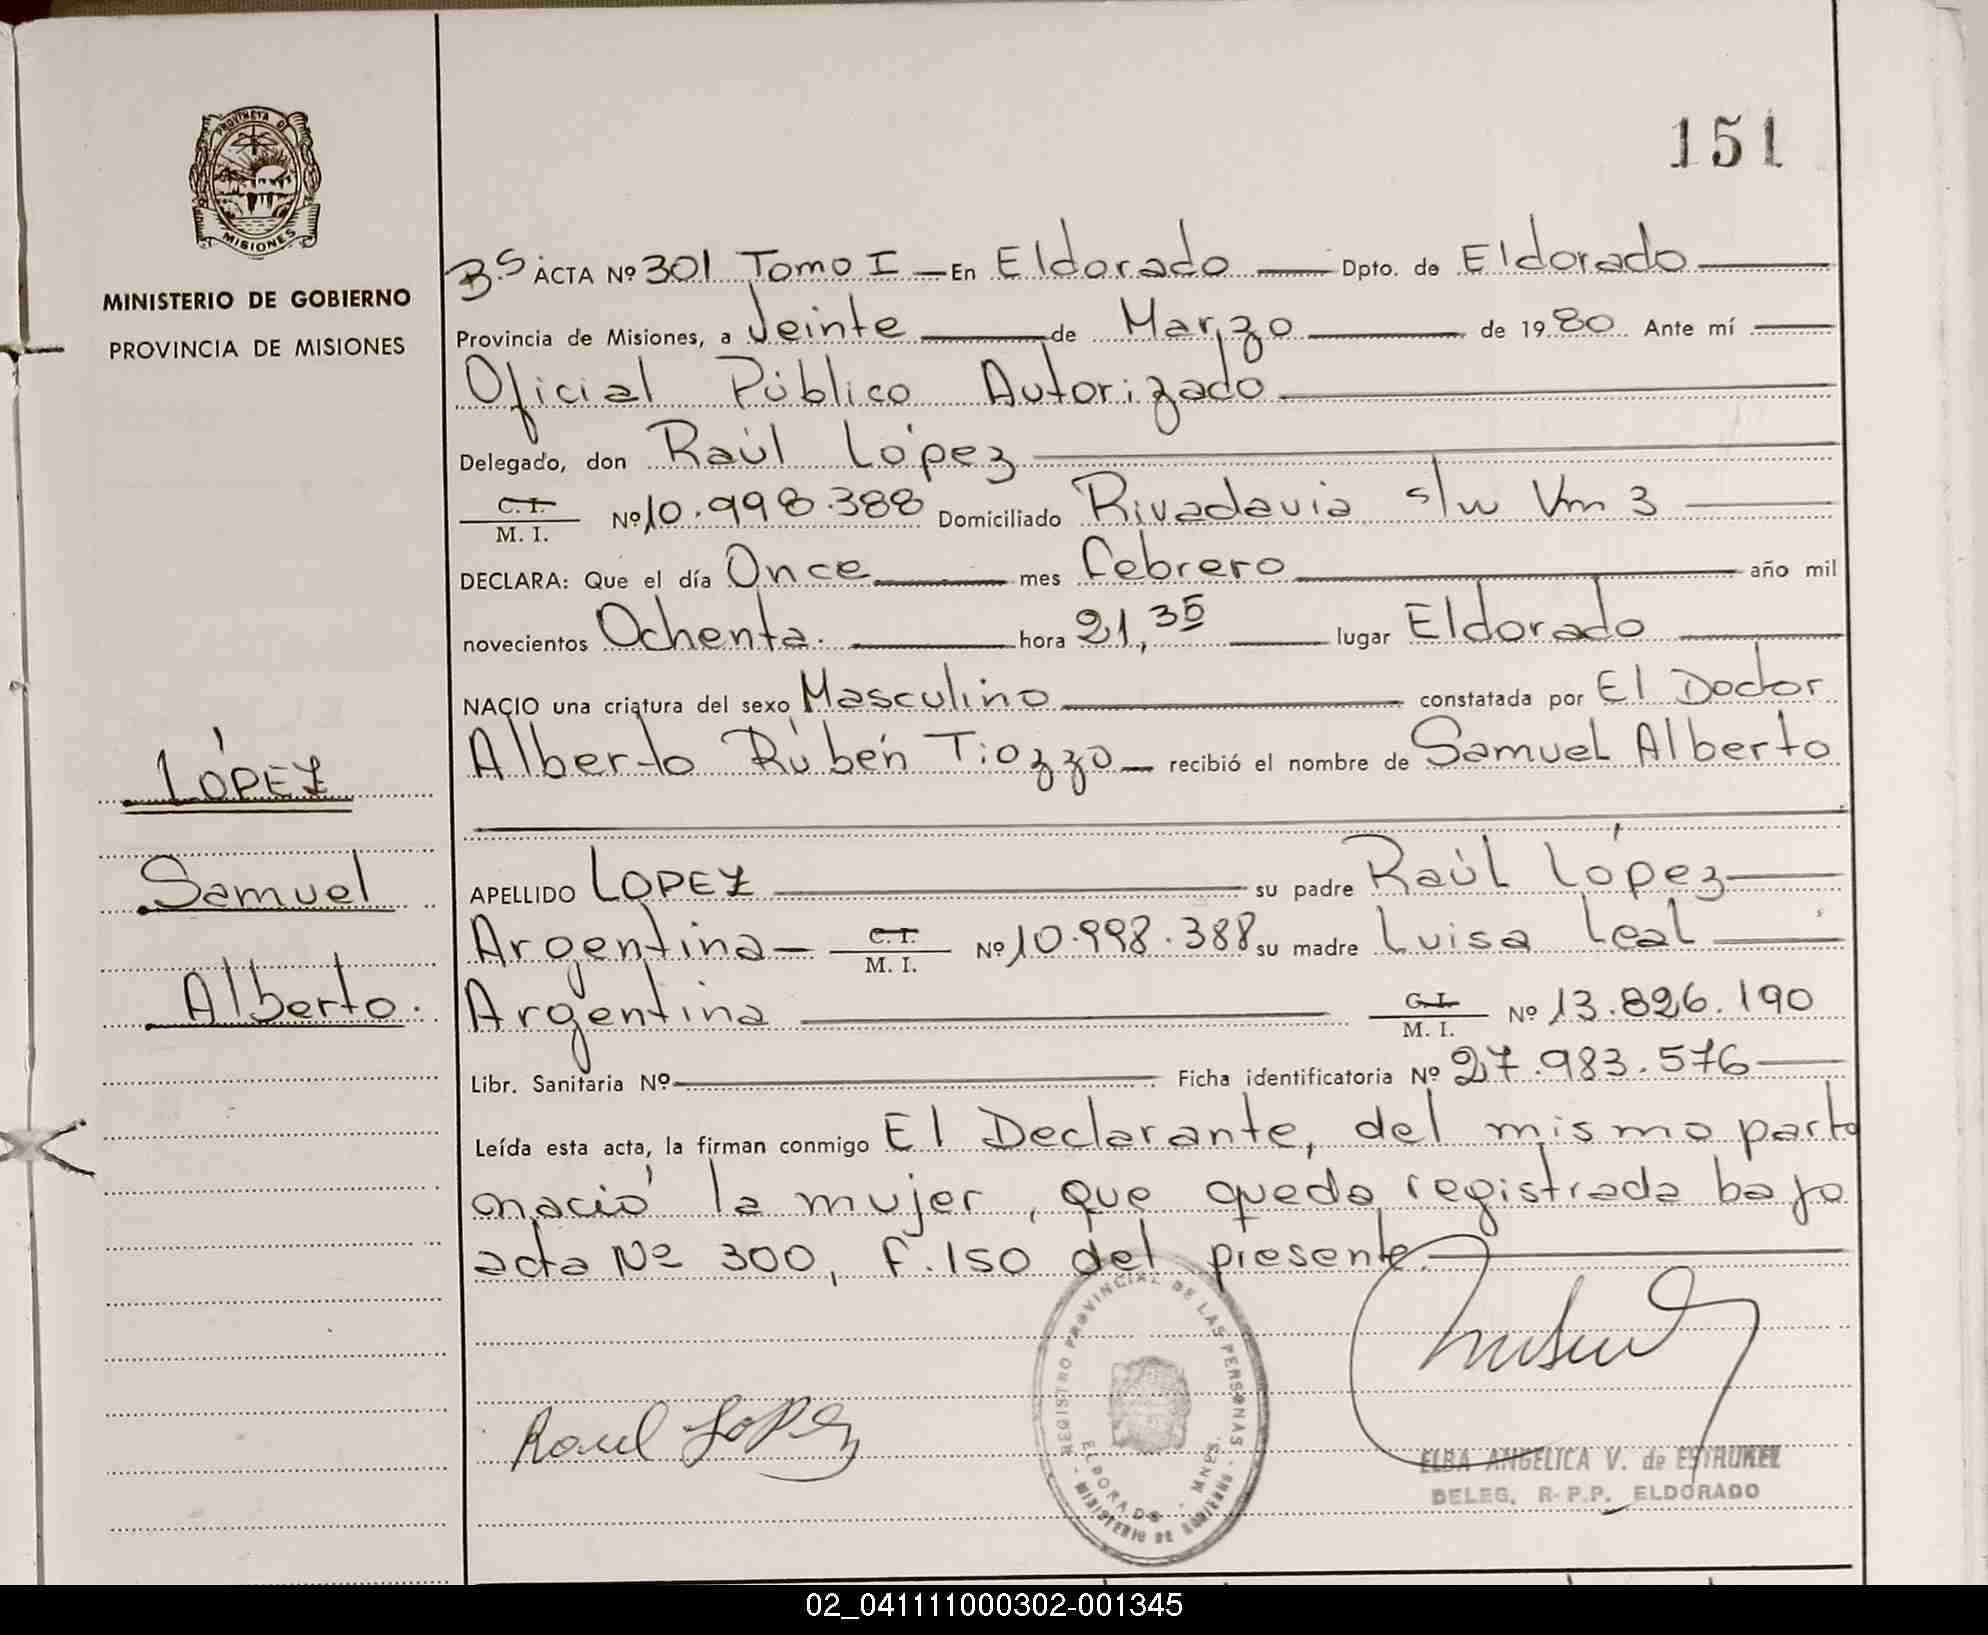 PROVINCIA DE
MISIONES
MINISTERIO DE GOBIERNO
PROVINCIA DE MISIONES
LÓPEZ
Samuel
Alberto.
151
B.S ACTA Nº 301 Tomo I En Eldorado Dpto. de Eldorado
Provincia de Misiones, a Veinte de Marzo de 1980 Ante mí
Oficial Público Autorizado
Delegado, don Raúl López
C. I.
M. I. Nº 10.998.388 Domiciliado Rivadavia s/n Km 3
DECLARA: Que el día Once mes febrero año mil
novecientos Ochenta. hora 21,35 lugar Eldorado
NACIO una criatura del sexo Masculino constatada por El Doctor
Alberto Rúben Tiozzo recibió el nombre de Samuel Alberto
APELLIDO LOPEZ su padre Raúl López
Argentina C. I.
M. I. Nº 10.998.388 su madre Luisa Leal
Argentina C. I.
M. I. Nº 13.826.190
Libr. Sanitaria Nº Ficha identificatoria Nº 27.983.576
Leída esta acta, la firman conmigo El Declarante, del mismo parto
nació la mujer, que queda registrada bajo
acta Nº 300, f. 150 del presente.
Raul Lopez
REGISTRO PROVINCIAL DE LAS PERSONAS - MINISTERIO DE GOBIERNO
ELDORADO - MNES.
ELBA ANGELICA V. de ESTRUKEL
DELEG. R.P.P. ELDORADO
02_041111000302-001345